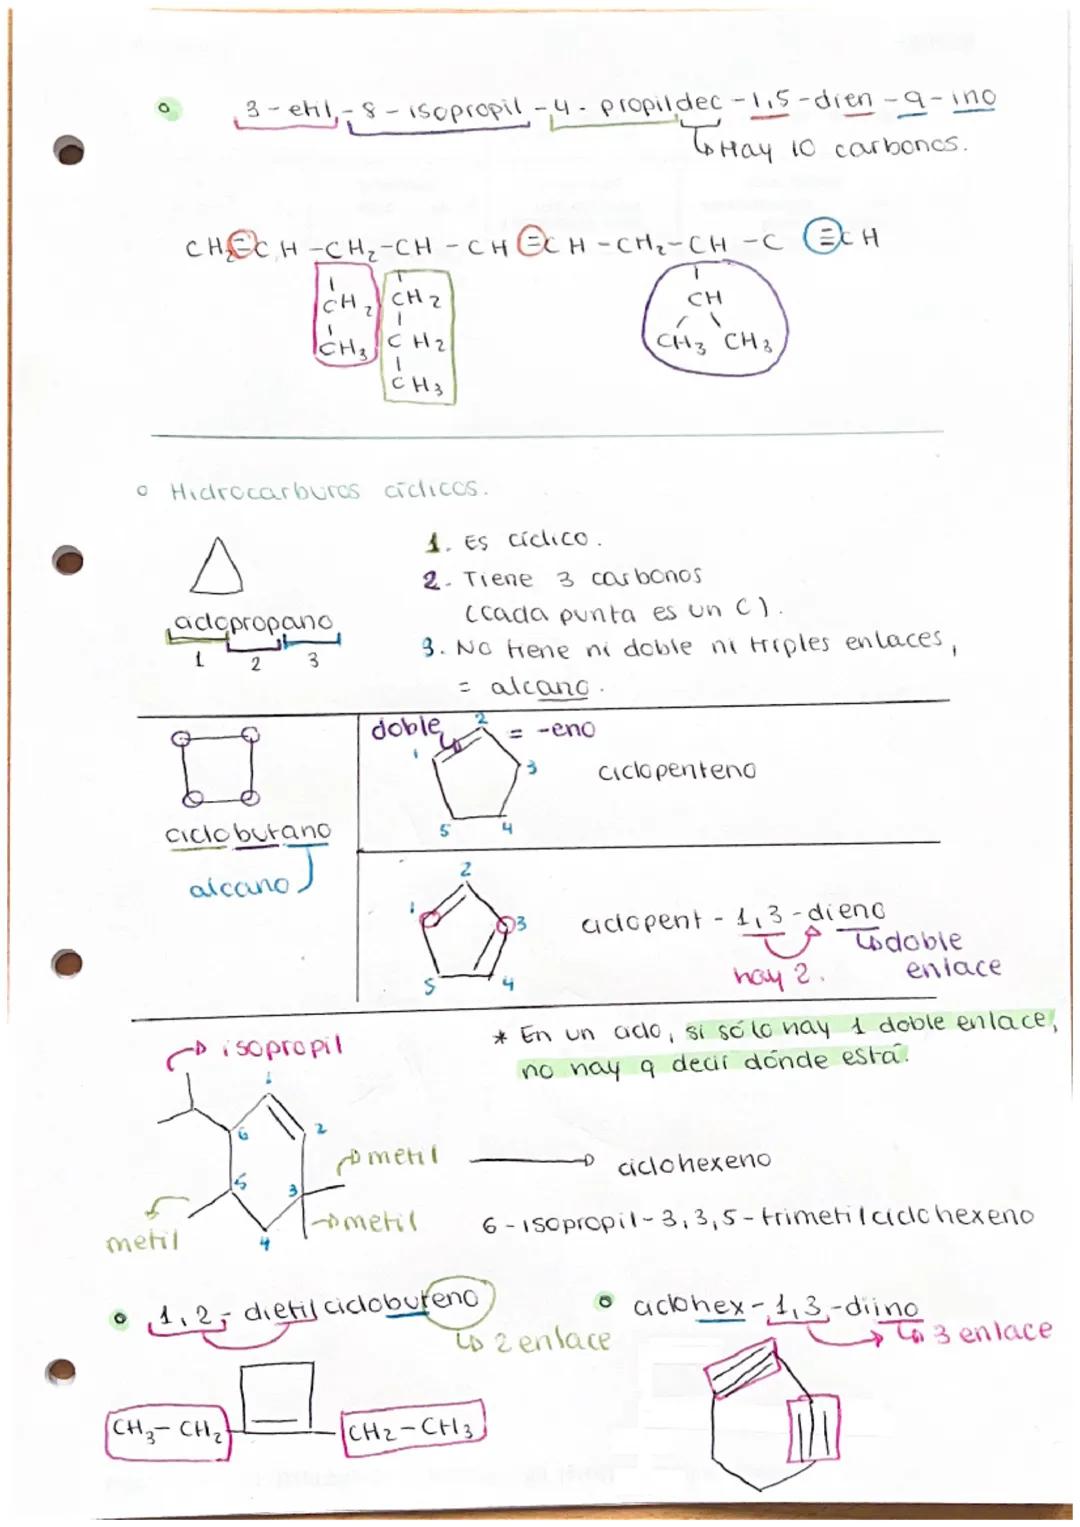 3-etil-8-isopropil-4-propildec-1,5-dien-9-ino
↳ Hay 10 carbonos.
CH₂=CH-CH₂-CH-CH=CH-CH₂-CH-C≡CH
CH₂ CH₂ CH
CH₃ CH₂ CH₃ CH₃
CH₃
Hidrocarburos cíclicos.
1. Es cíclico.
2. Tiene 3 carbonos
(cada punta es un C).
ciclopropano
1 2 3
3. No tiene ni doble ni triples enlaces,
= alcano.
doble 2 = -eno
1 3
ciclopenteno
5 4
ciclobutano
alcano
2
1 3
5 4
ciclopent-1,3-dieno
↳doble
hay 2. enlace
* En un ciclo, si sólo hay 1 doble enlace,
no hay q decir dónde está.
isopropil
1
6 2
metil → ciclohexeno
5 3
metil
metil
4
6-isopropil-3,3,5-trimetilciclohexeno
1,2-dietilciclobuteno
↳ 2 enlace
ciclohex-1,3-diino
↳ 3 enlace
CH₃-CH₂ CH₂-CH₃